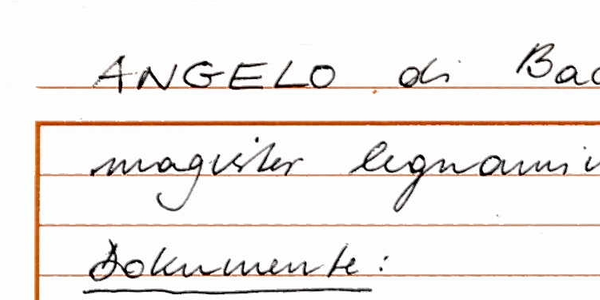 ANGELO di Bac
magister legnami
Dokumente: